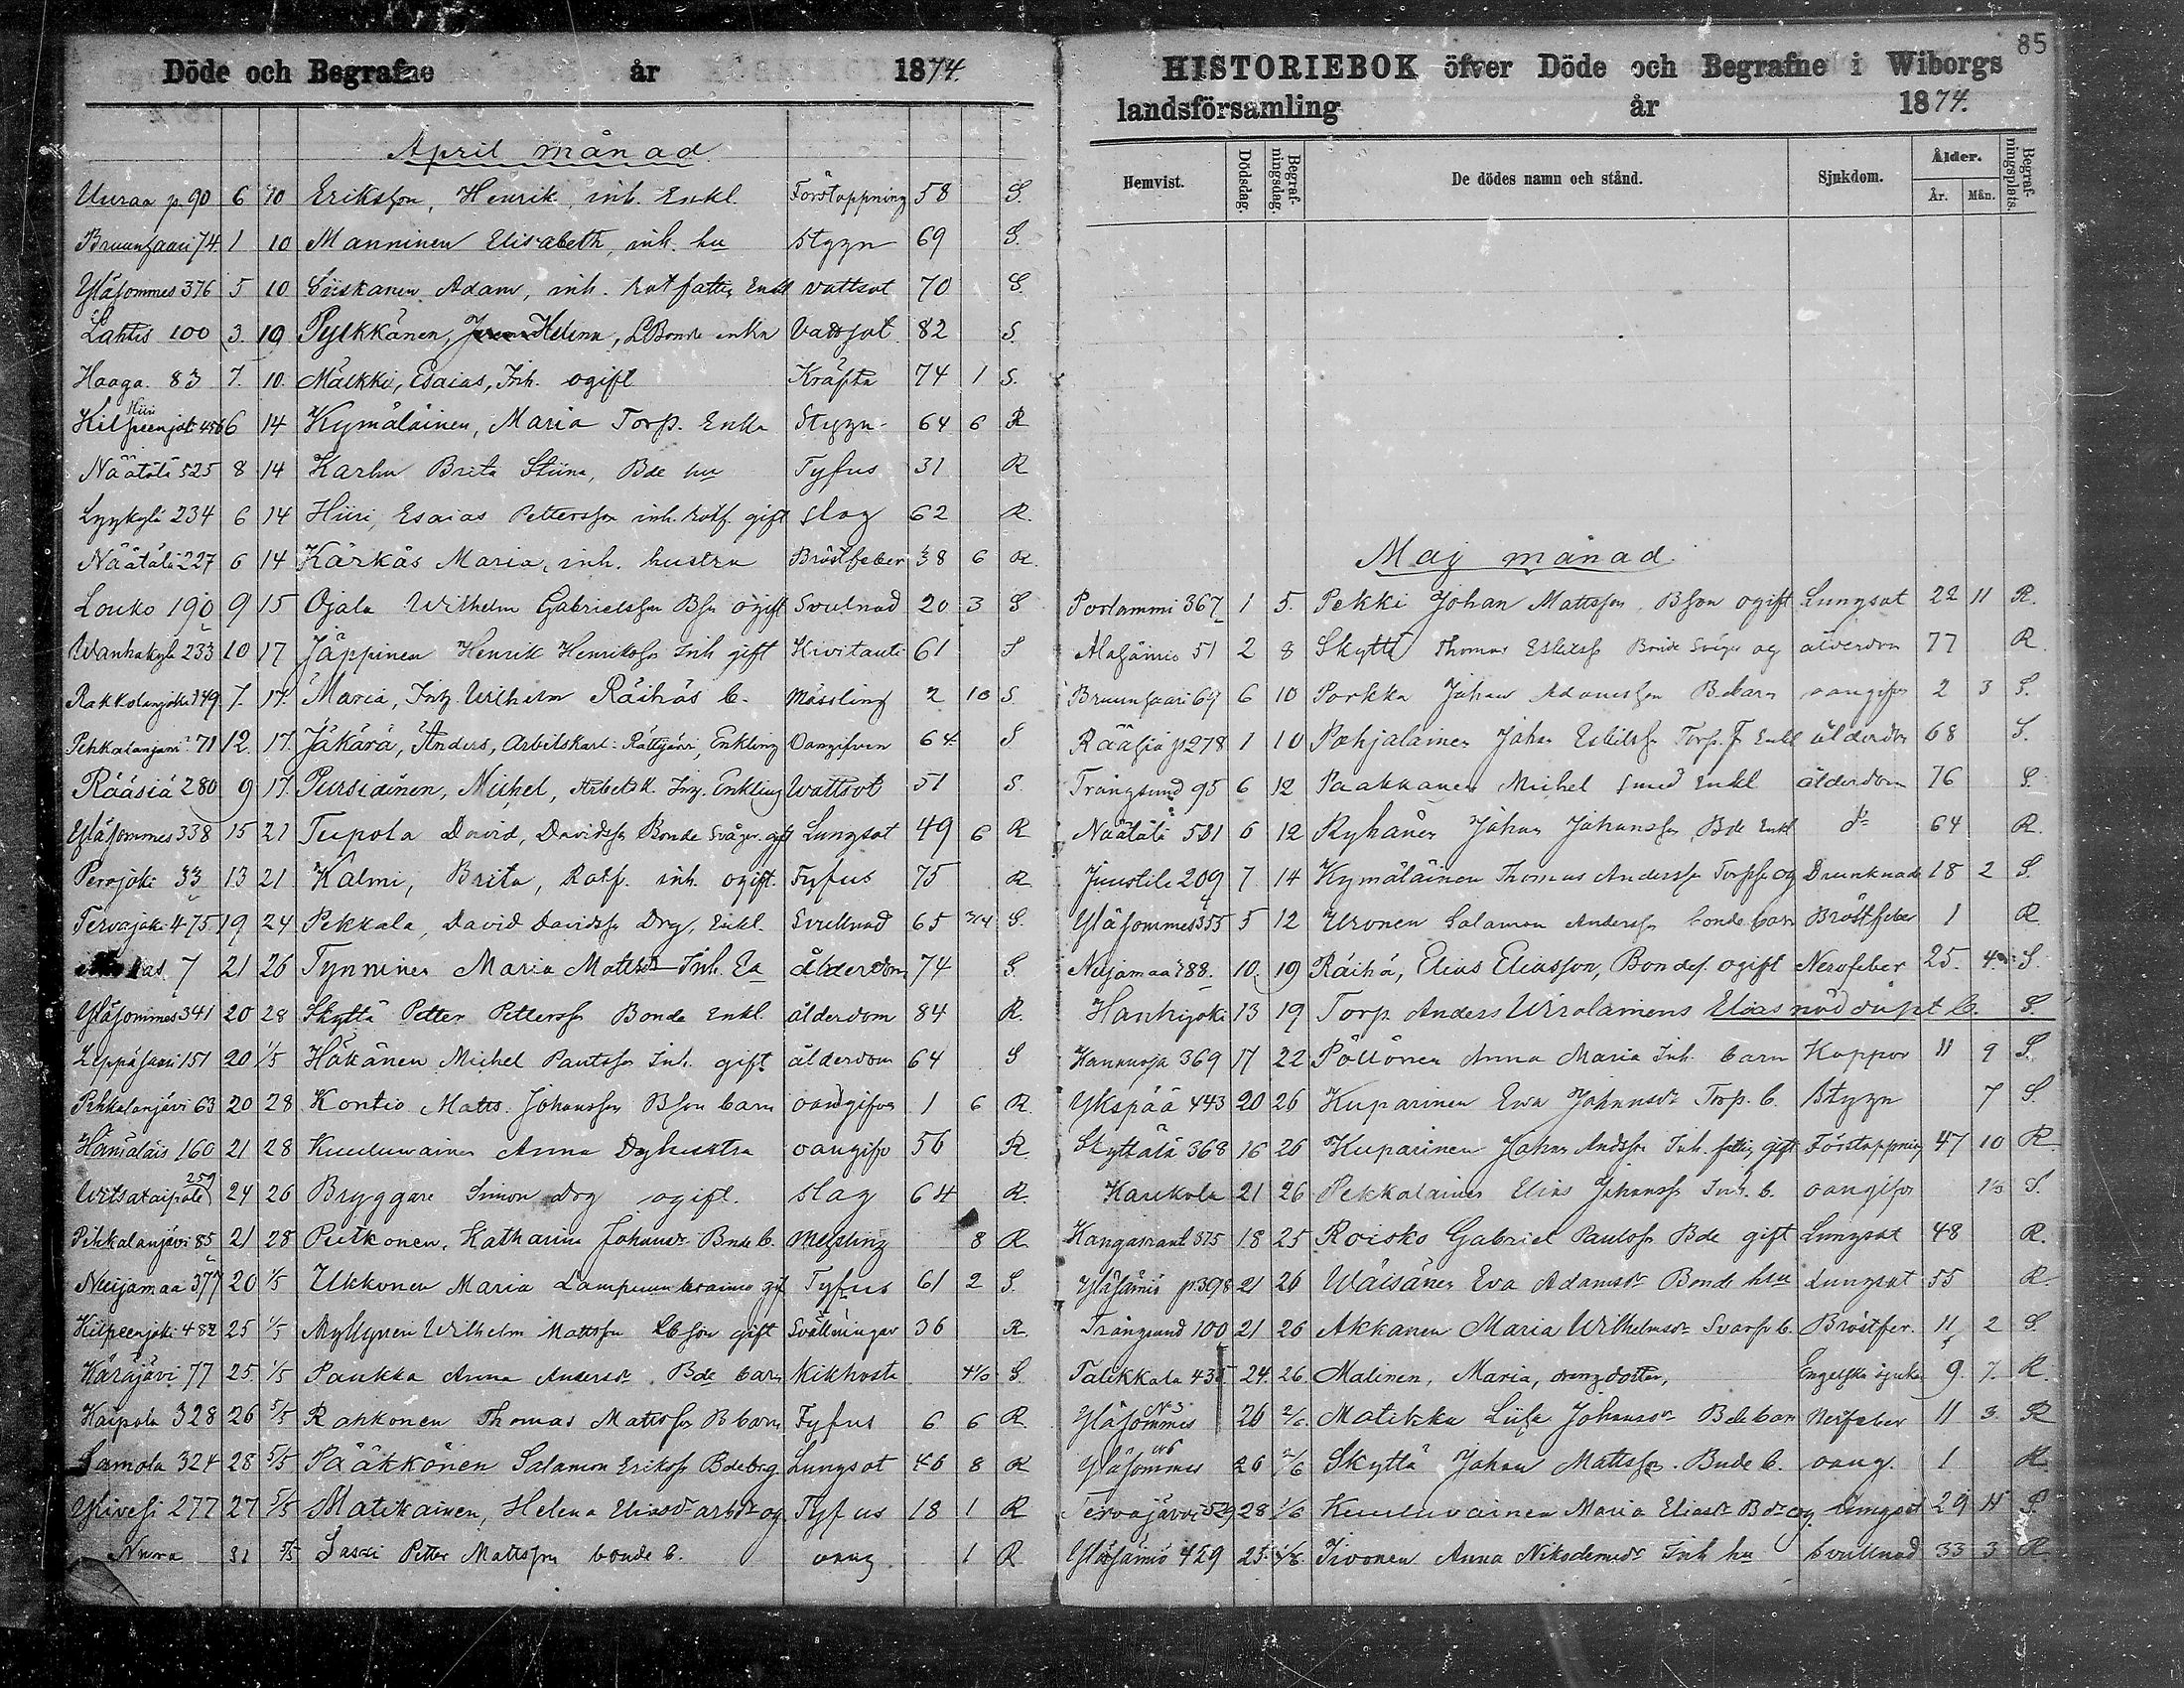 Döde och Begrafne år 1874.
April månad
Uuraa p 90 6 10 Eriksson, Henrik, inh. Enkl. Förstoppning 58 S.
Bruunsaari 74 1 10 Manninen Elisabeth, inh. hu Stygn 69 S.
Yläsommes 376 5 10 Siiskanen Adam, inh. rotfattig Enkl vattsot 70 S.
Lahtis 100 3. 10 Pylkkänen, Helena, LBonde enka Vattsot 82 S.
Haaga. 83 7. 10. Mälkki, Esaias, Inh. ogift Kräfta 74 1 S.
Kilpeenjoki 456 6 14 Kymäläinen, Maria Torp. Enka Stygn 64 6 R
Näätälä 525 8 14 Karhu Brita Stiina, Bde hu Tyfus 31 R
Lyykylä 234 6 14 Hiiri, Esaias Pettersson inh. rotf. gift slag 62 R.
Näätälä 227 6 14 Kärkäs Maria, inh. hustru Bröstfeber 38 6 R.
Louko 190 9 15 Ojala Wilhelm Gabrielsson Bson ogift Svulnad 20 3 S
Wanhakylä 233 10 17 Jäppinen Henrik Henriksson Inh gift Kivitauti 61 S
Rakkolanjoki 349. 7. 17. Maria, Inh. Wilhelm Räihäs b. Mässling 2 10 S.
Pihkalanjärvi 71 12. 17. Jäkärä, Anders, Arbetskarl: Rättijärvi, Enkling Oangifven 64 S
Rääsiä 280 9 17. Pursiainen, Michel, Arbetsk. Inh. Enkling Wattsot 51 S.
Yläsommes 338 15 21 Tupola David, Davidsson Bonde Svåger gift Lungsot 49 6 R
Perojoki 33 13 21 Kalmi, Brita, Rotf. inh. ogift. Tyfus 75 R
Tervajoki 475. 19 24 Pekkala, David Davidsson Drg, Enkl. Svullnad 65 S.
7 21 26 Tynninen Maria Inh. Ea ålderdom 74 S.
Yläsommes 341 20 28 Skyttä Petter Pettersson Bonde Enkl. ålderdom 84 R.
Leppäsaari 151 20 1/5 Häkänen Michel Paulsson Inh. gift ålderdom 64 S
Pihkalanjärvi 63 20 28 Kontio Matts. Johansson Bson barn oangifven 1 6 R.
Hämäläis 160 21 28 Kuuluwainen Anna Drghustru oangifv 56 R.
259 24 26 Bryggare Simon drg ogift. slag 64 R.
Pihkalanjärvi 85 21 28 Putkonen, Katharina Johansdr Bnde b. Messling 8 R
Nuijamaa 377 20 1/5 Ukkonen Maria gif Tyfus 61 2 S.
Kilpeenjoki 482 25 1/5 Myllynen Wilhelm Mattsson Lbson gift Svällningar 36 R
Käräjärvi 77 25. 1/5 Paukka Anna Andersdr. Bde barn Kikhosta S.
Kaipola 328 26 5/5 Rakkonen Thomas Mattsson B barn Tyfus 6 6 R.
Samola 324 28 5/5 Pääkkönen Salamon Eriksson Bdebrg Lungsot 46 8 R
Ykivesi 277 27 5/5 Matikainen, Helena Eliasdr arbdr og Tyfus 18 1 R
Nura 31 5/5 Saski Petter Mattsson bonde b. oang 1 R
85
HISTORIEBOK öfver Döde och Begrafne i Wiborgs
landsförsamling år 1874.
Hemvist. Dödsdag. Begrafningsdag. De dödes namn och stånd. Sjukdom. Ålder. År. Mån. Begrafningsplats.
Maj månad.
Portammi 367 1 5. Pekki Johan Mattsson, Bson ogift Lungsot 22 11 R.
Alasäiniö 51 2 8 Skyttä Thomas Eskilsson Bonde Svåger og ålderdom 77 R.
Bruunsaari 69 6 10 Porkka Johan Adamsson B.barn oangifv 2 3 S.
Rääsiä p 278 1 10 Pohjalainen Johan Eskilsson Torp. F Enkl ålderdom 68 S.
Trångsund 95 6 12 Paakkanen Michel smed Enkl ålderdom 76 S.
Näätälä 581 6 12 Ryhänen Johan Johansson Bde Enkl do 64 R.
Juustila 209 7 14 Kymäläinen Thomas Andersson Torpson og Drunknade 18 2 S.
Yläsommes 355 5 12 Uronen Salamon Andersson bonde barn Bröstfeber 1 R
Nujamaa 388. 10. 19 Räihä, Elias Eliasson, Bondes. ogift Nervfeber 25. 4. S.
Hanhijoki 13 19 Torp. Anders Wirolainens Elias nöd döpt b. S.
369 17 22 Pöllönen Anna Maria Inh. barn Koppor 11 9 S.
Ykspää 443 20 26 Kuparinen Ewa Johansdr Torp. b. Stygn 7 S.
Skyttälä 368 16 26 Kuparinen Johan Andsson Inh. fattig gift Förstoppning 47 10 R
Karikola 21 26 Pekkalainen Elias Johansson Inh. b. oangifv S.
Kangasrant 375 18 25 Roisko Gabriel Paulsson Bde gift Lungsot 48 R.
Yläsäiniö p.398 21 26 Wäisänen Eva Adamsdr Bonde hsu Lungsot 55 R
Trångsund 100 21 26 Akkanen Maria Wilhelmsdr Svarfv b. Bröstfer. 11 2 S.
Talikkala 435 24. 26. Malinen, Maria, drengdotter, Engelska sjukan 9. 7. R.
Yläsommes No 3 26 2/6. Matikka Liisa Johansdr Bdebarn Nerffeber 11 3 R
Yläsommes 26 2/6 Skyttä Johan Mattsson. Bnde b. oang. 1 R.
Tervajärvi 529 28 1/6 Kuuluvainen Maria Eliasdr Bdr og Lungsot 29 11 S
Yläsäiniö 429 25. Tivonen Anna Nikodemusdr Inh hu Svullnad 33 3 R